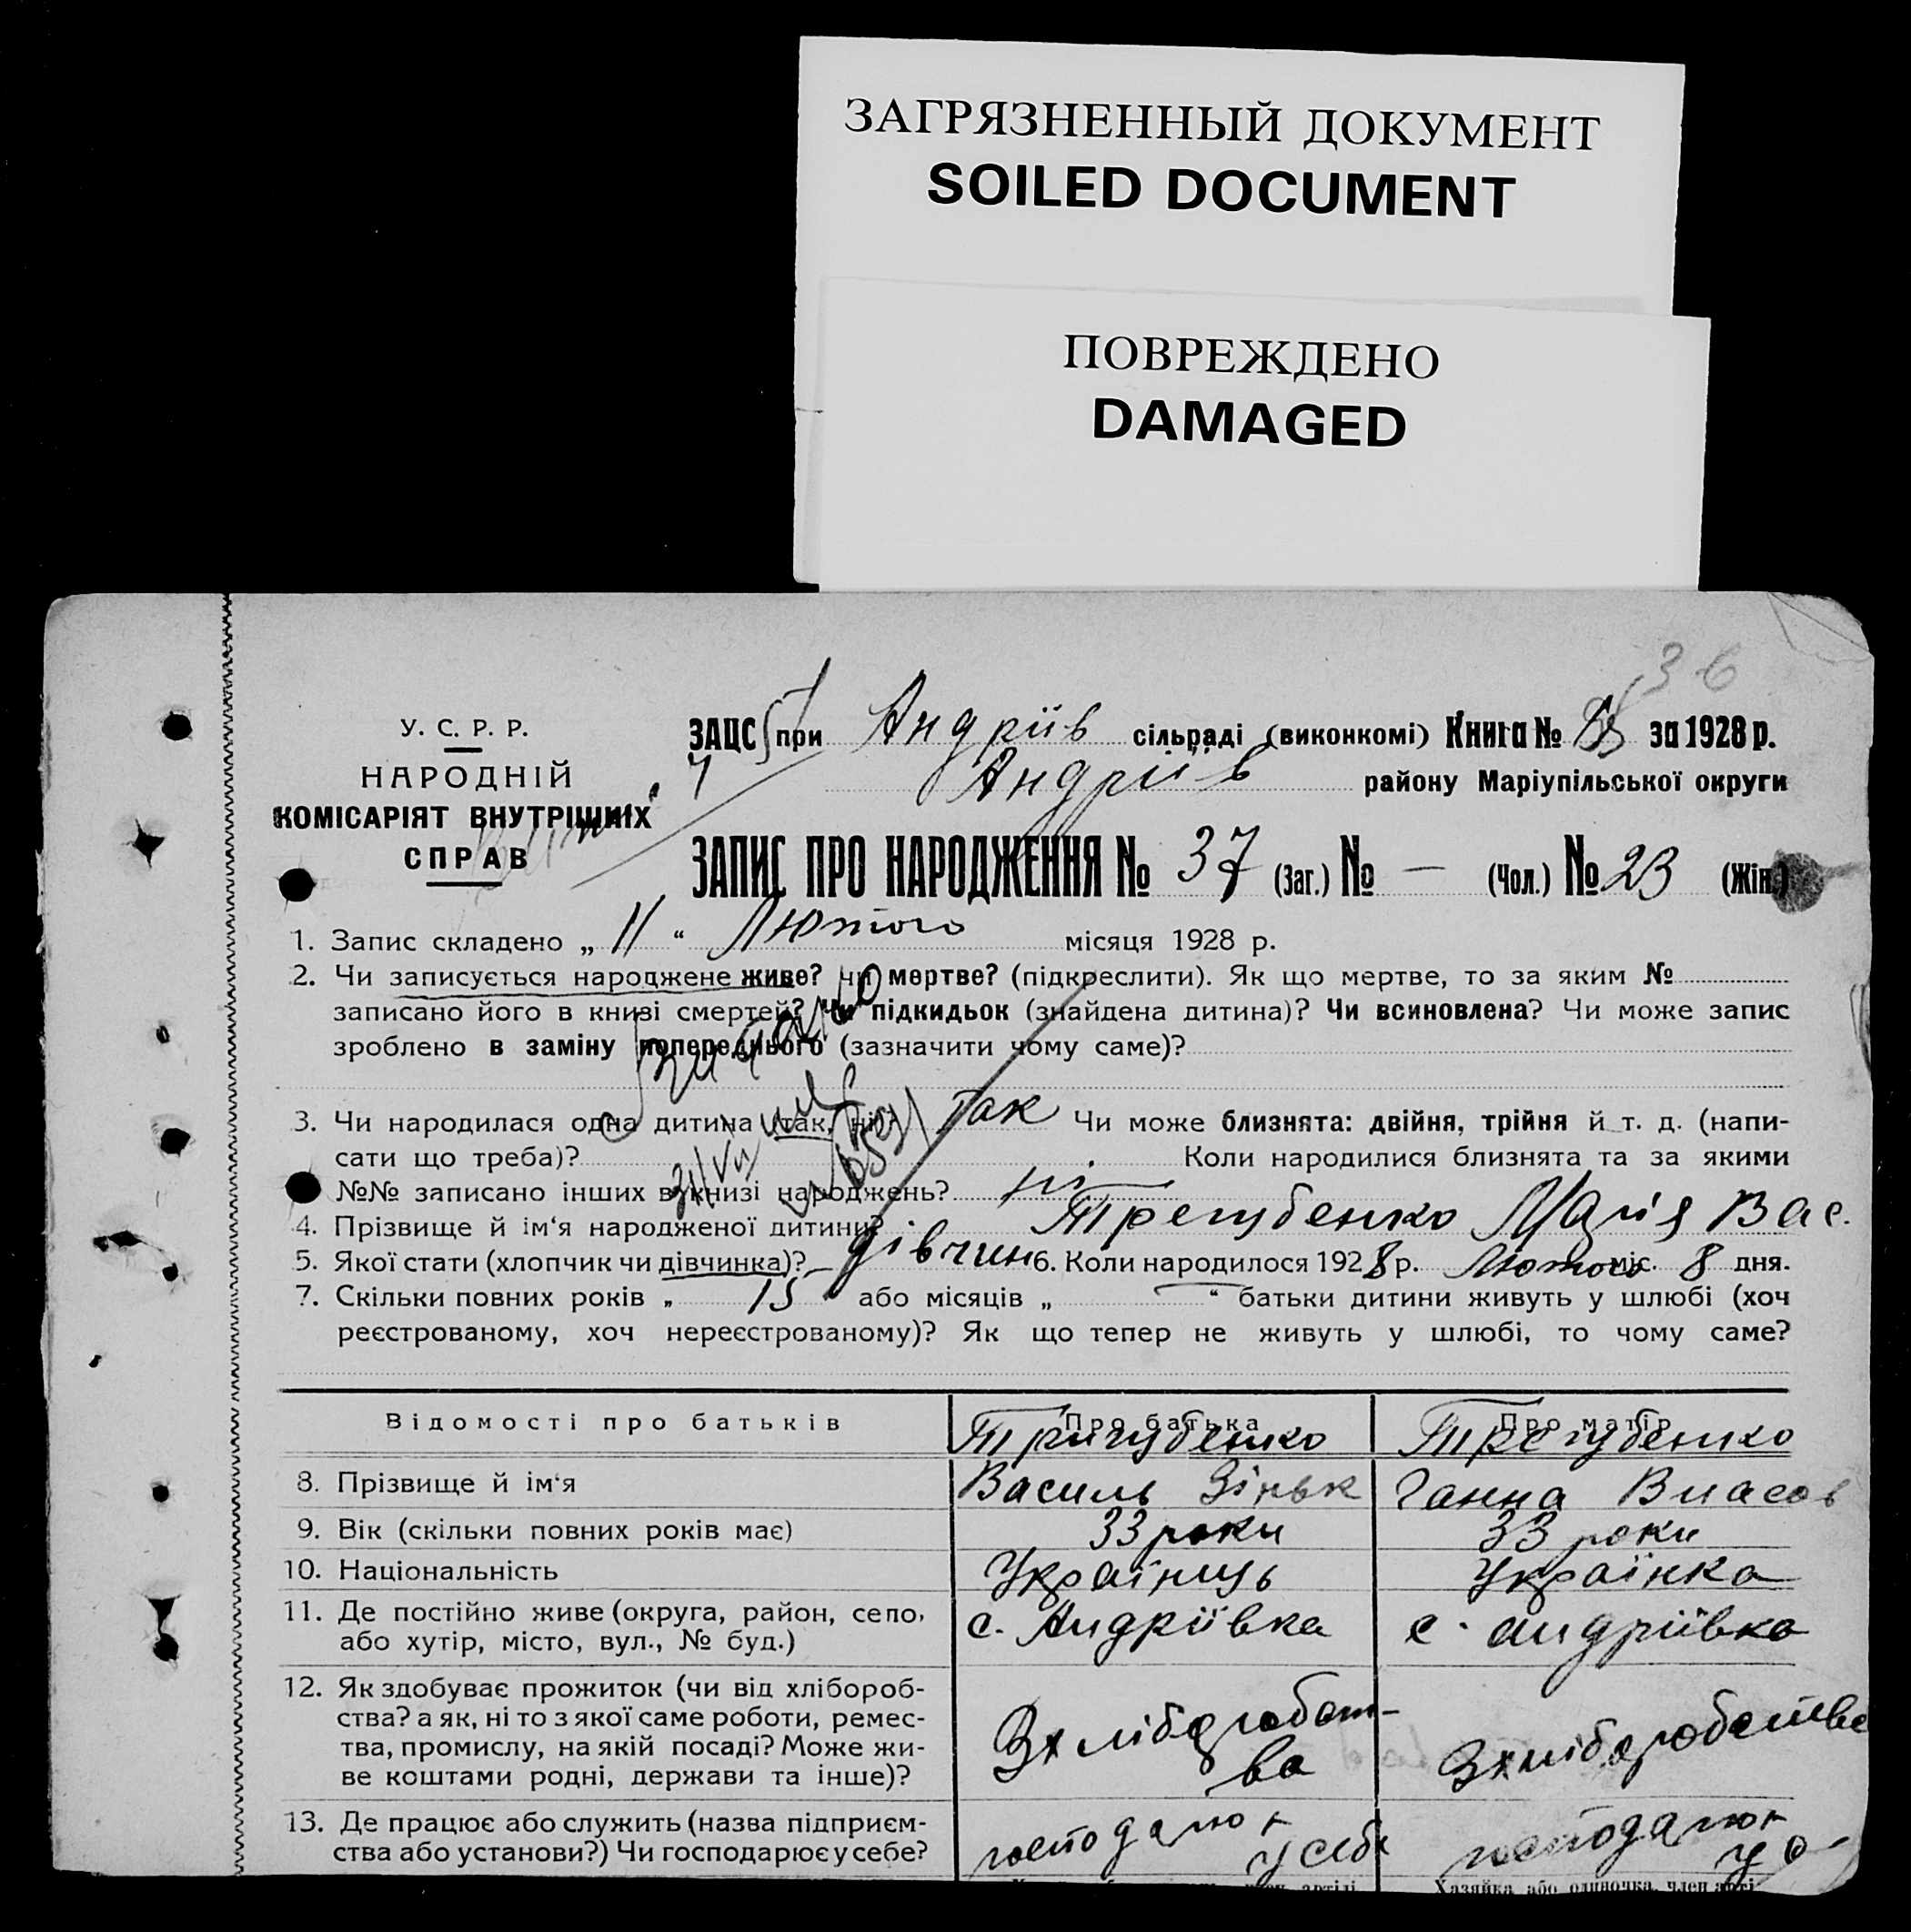 ЗАГРЯЗНЕННЫЙ ДОКУМЕНТ
SOILED DOCUMENT
ПОВРЕЖДЕНО
DAMAGED
36
У. С. Р. Р.
НАРОДНІЙ
КОМІСАРІЯТ ВНУТРІШНІХ
СПРАВ
ЗАЦС при Андріїв сільраді (виконкомі) Книга № за 1928 р.
Андріїв району Маріупільської округи
ЗАПИС ПРО НАРОДЖЕННЯ № 37 (Заг.) № — (Чол.) № 23 (Жін.)
1. Запис складено „ 11 “ Лютого місяця 1928 р.
2. Чи записується народжене живе? чи мертве? (підкреслити). Як що мертве, то за яким №
записано його в книзі смертей? Чи підкидьок (знайдена дитина)? Чи всиновлена? Чи може запис
зроблено в заміну попереднього (зазначити чому саме)?
3. Чи народилася одна дитина (так, ні)? Так Чи може близнята: двійня, трійня й т. д. (напи-
сати що треба)? Коли народилися близнята та за якими
№№ записано інших в книзі народжень? ні
4. Прізвище й ім‘я народженої дитини? Трегубенко Марія Вас.
5. Якої стати (хлопчик чи дівчинка)? дівчин 6. Коли народилося 1928 р. Лютого міс. 8 дня.
7. Скільки повних років „ 15 або місяців „ — “ батьки дитини живуть у шлюбі (хоч
реєстрованому, хоч нереєстрованому)? Як що тепер не живуть у шлюбі, то чому саме?
Відомості про батьків Про батька Про матір
Тригубенко Трегубенко
8. Прізвище й ім‘я Василь Зіньк Ганна Власов
9. Вік (скільки повних років має) 33 роки 33 роки
10. Національність Українець Українка
11. Де постійно живе (округа, район, село, с. Андріївка с. Андріївка
або хутір, місто, вул., № буд.)
12. Як здобуває прожиток (чи від хлібороб-
ства? а як, ні то з якої саме роботи, ремес- З хліборобст- З хліборобства
тва, промислу, на якій посаді? Може жи- ва
ве коштами родні, держави та інше)?
13. Де працює або служить (назва підприєм- господарює господарює
ства або установи?) Чи господарює у себе? у себе у
Хазяйка або одиночка, член арті